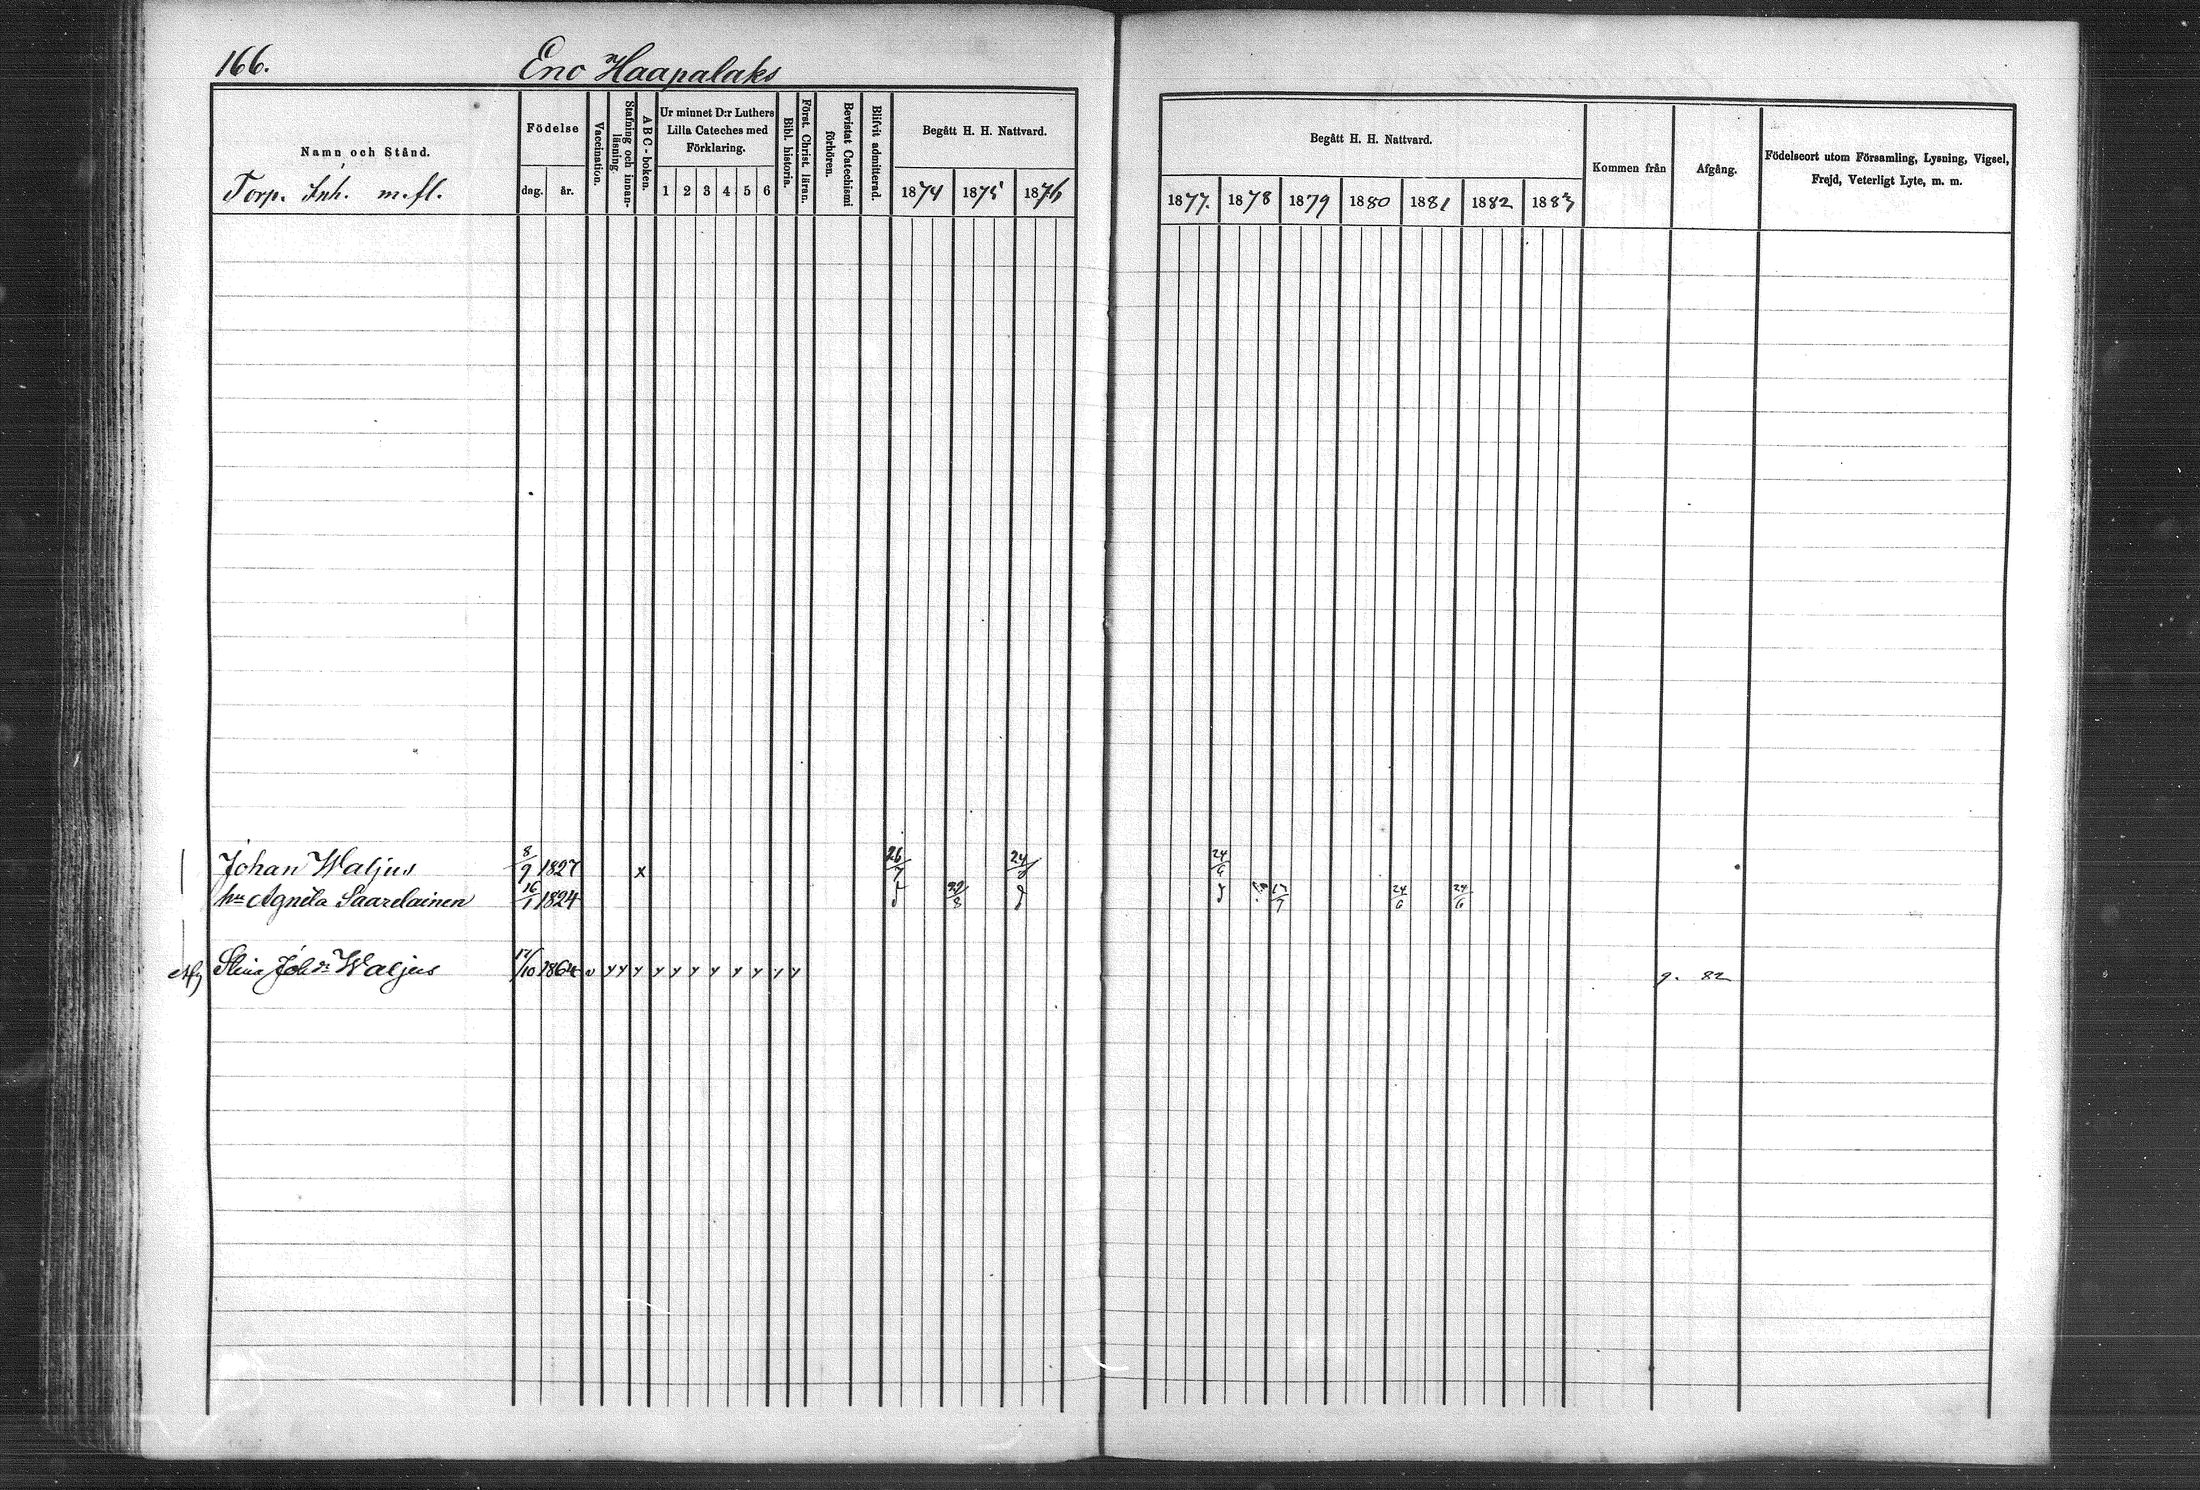 166.
Eno Haapalaks
Namn och Stånd.
Torp. Inh. m. fl.
Födelse
dag. år.
Vaccination.
Stafning och innan-läsning
ABC-boken.
Ur minnet D:r Luthers
Lilla Cateches med
Förklaring.
1 2 3 4 5 6
Bibl. historia.
Först. Christ. läran.
Bevistat Catechismi
förhören.
Blifvit admitterad.
Begått H. H. Nattvard.
1874 1875 1876
Begått H. H. Nattvard.
1877. 1878 1879 1880 1881 1882 1883
Kommen från
Afgång.
Födelseort utom Församling, Lysning, Vigsel,
Frejd, Veterligt Lyte, m. m.
Johan Waljus 8/9 1827 x 26/7 24/9 24/6
hu Agneta Saarelainen 16/1 1824 24/6 24/6
Stina Joh:dr Waljus 17/10 1864 82